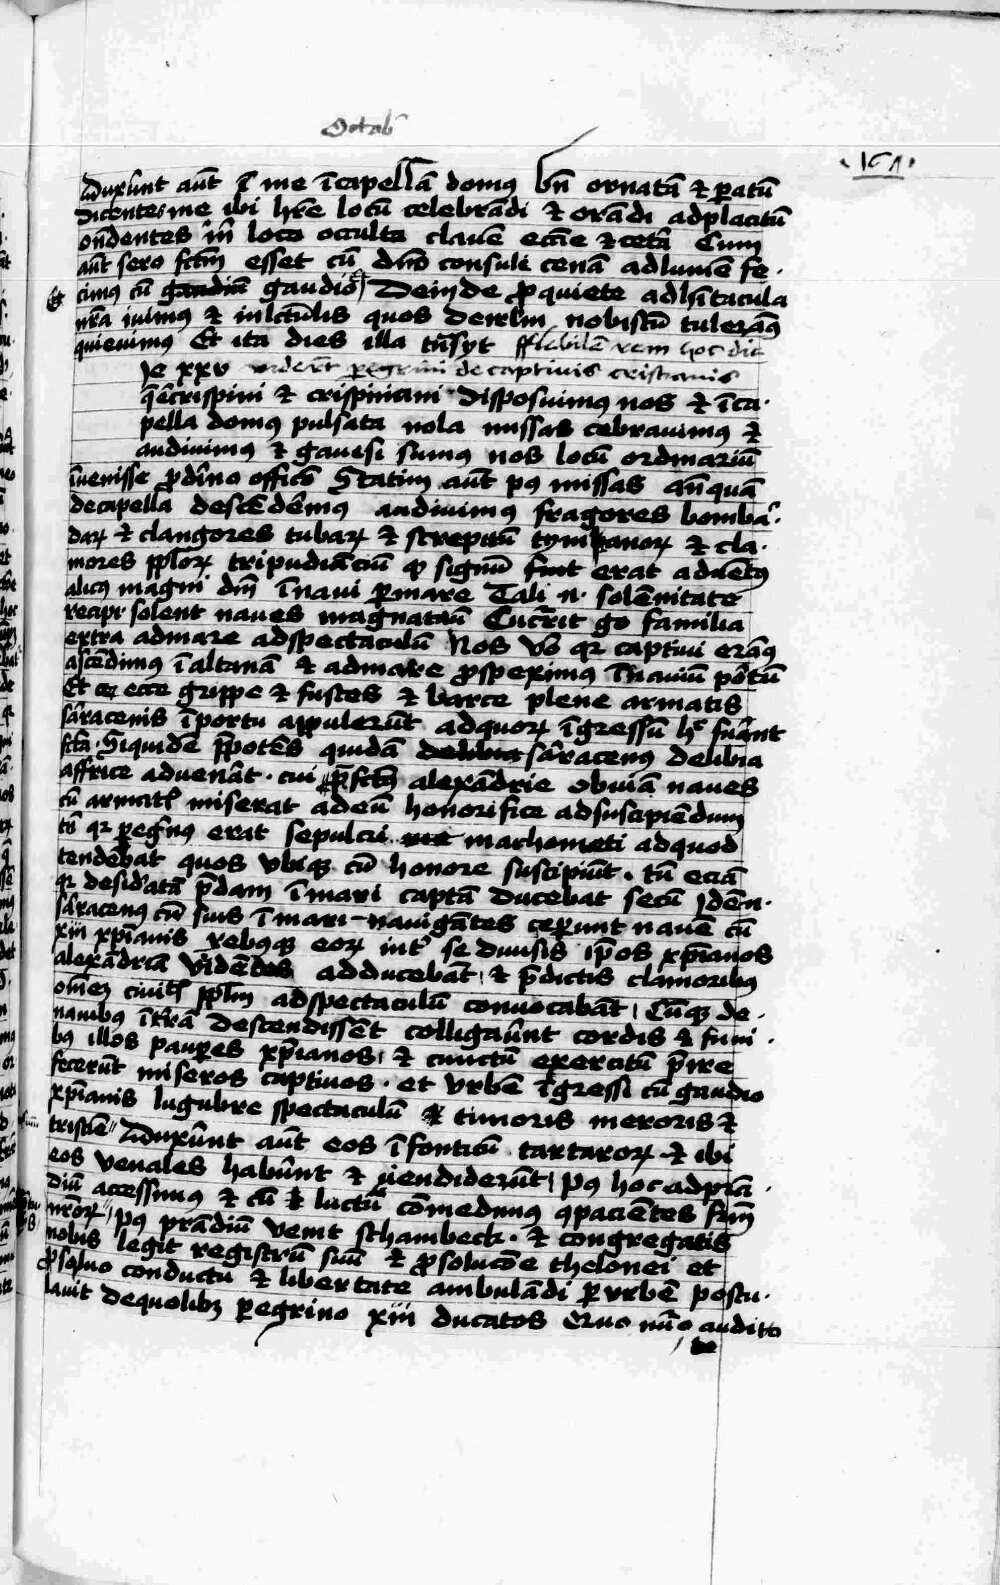 Octob
· 151 ·
Duxerūt aūt ī me ī capellā domus bn̄ ornatā & paratū
dicentes me ibi hr̄e locū celebrādi & orādi ad placitū
on̄dentes in loco occulto clavē ecc̄ie & cetā Cum
aūt sero fctm̄ esset cū dn̄o consule cenā ad lumē fe·
Et cimus cū gaudiū gaudio Deinde p quiete ad hītacula
nr̄a ivimus & in lctulis quos nobiscū tulerāꝰ
quievimus Et ita dies illa trāsijt fflebilē rem hoc die
Ie xxv viderūt peregrini de captivis cristianis
crispini & crispiniani disposuimus nos & ī ca·
pella domus pulsata nola missas cebravimus &
audivimus & gavisi sumus nos locū ordinariū
īvenisse p diīno officō Statim aūt pꝰ missas anquā
de capella descēdēmus audivimus fragores bombar·
darꝝ & clangores tubarꝝ & strepitū tympanorꝝ & cla·
mores pplorꝝ tripudiāciū qp signū fuit erat advētꝰ
alicꝰ magni dn̄i ī navi p mare Tali n· solēnitate
recipi solent naves magnatuū Cucrrit go familia
extra ad mare ad spectaculū Nos vo qr captivi erāꝰ
ascēdimus ī altanā & ad mare pspeximus ī naviū portū
Et ce ecce grippe & fustes & barce plene armatis
saracenis ī portu appulerūt ad quorꝝ īgressū hc fuerūt
fcta· Siquidē ppotēs quidā de libia saracenus de libia
affrice advenāt· cui pfctꝰ alexādrie obviā naves
cū armatis miserat ad eū honorifice ad suscipiēdum
tū qr pegrnus erat sepulcri machometi ad quod
tendebat quos ubiqꝫ cū honore suscipiūt· tū eciā
qr desideratā pdam ī mari captā ducebat secū Idē n·
saracenus cū suis ī mari navigātes ceperunt navē cū
xiii xpianis rebusqꝫ eorꝝ int se divisis ipos xpianos
alexādriā vidētes adducebāt & pdictis clamoribus
om̄eꝫ civitatis pplm̄ ad spectaculū convocabāt Cūqꝫ de·
navibus ī trā descendissēt colligaverūt cordis & funi·
bꝰ illos paupes xpianos & cunctū exercitū pire
fecerūt miseros captivos· et urbē īgressi cū gaudio
xpianis lugubre spectaculū & timoris meroris &
tristicie Duxerūt aūt eos ī fonticū tartarorꝝ & ibi
eos venales habūnt & vendiderūt Pꝰ hoc ad prā·
diū accessimus & cū luctu cōmedimus cpacientes fribꝫ
nrōrꝝ Pꝰ prādiū venit schambeck· & congregatis
nobis legit registrū suū & p solucōe thelonei et
p salvo conductu & libertate ambulādi p urbē postu·
lavit de quolibꝫ peregrino xiii ducatos Quo nūc audito